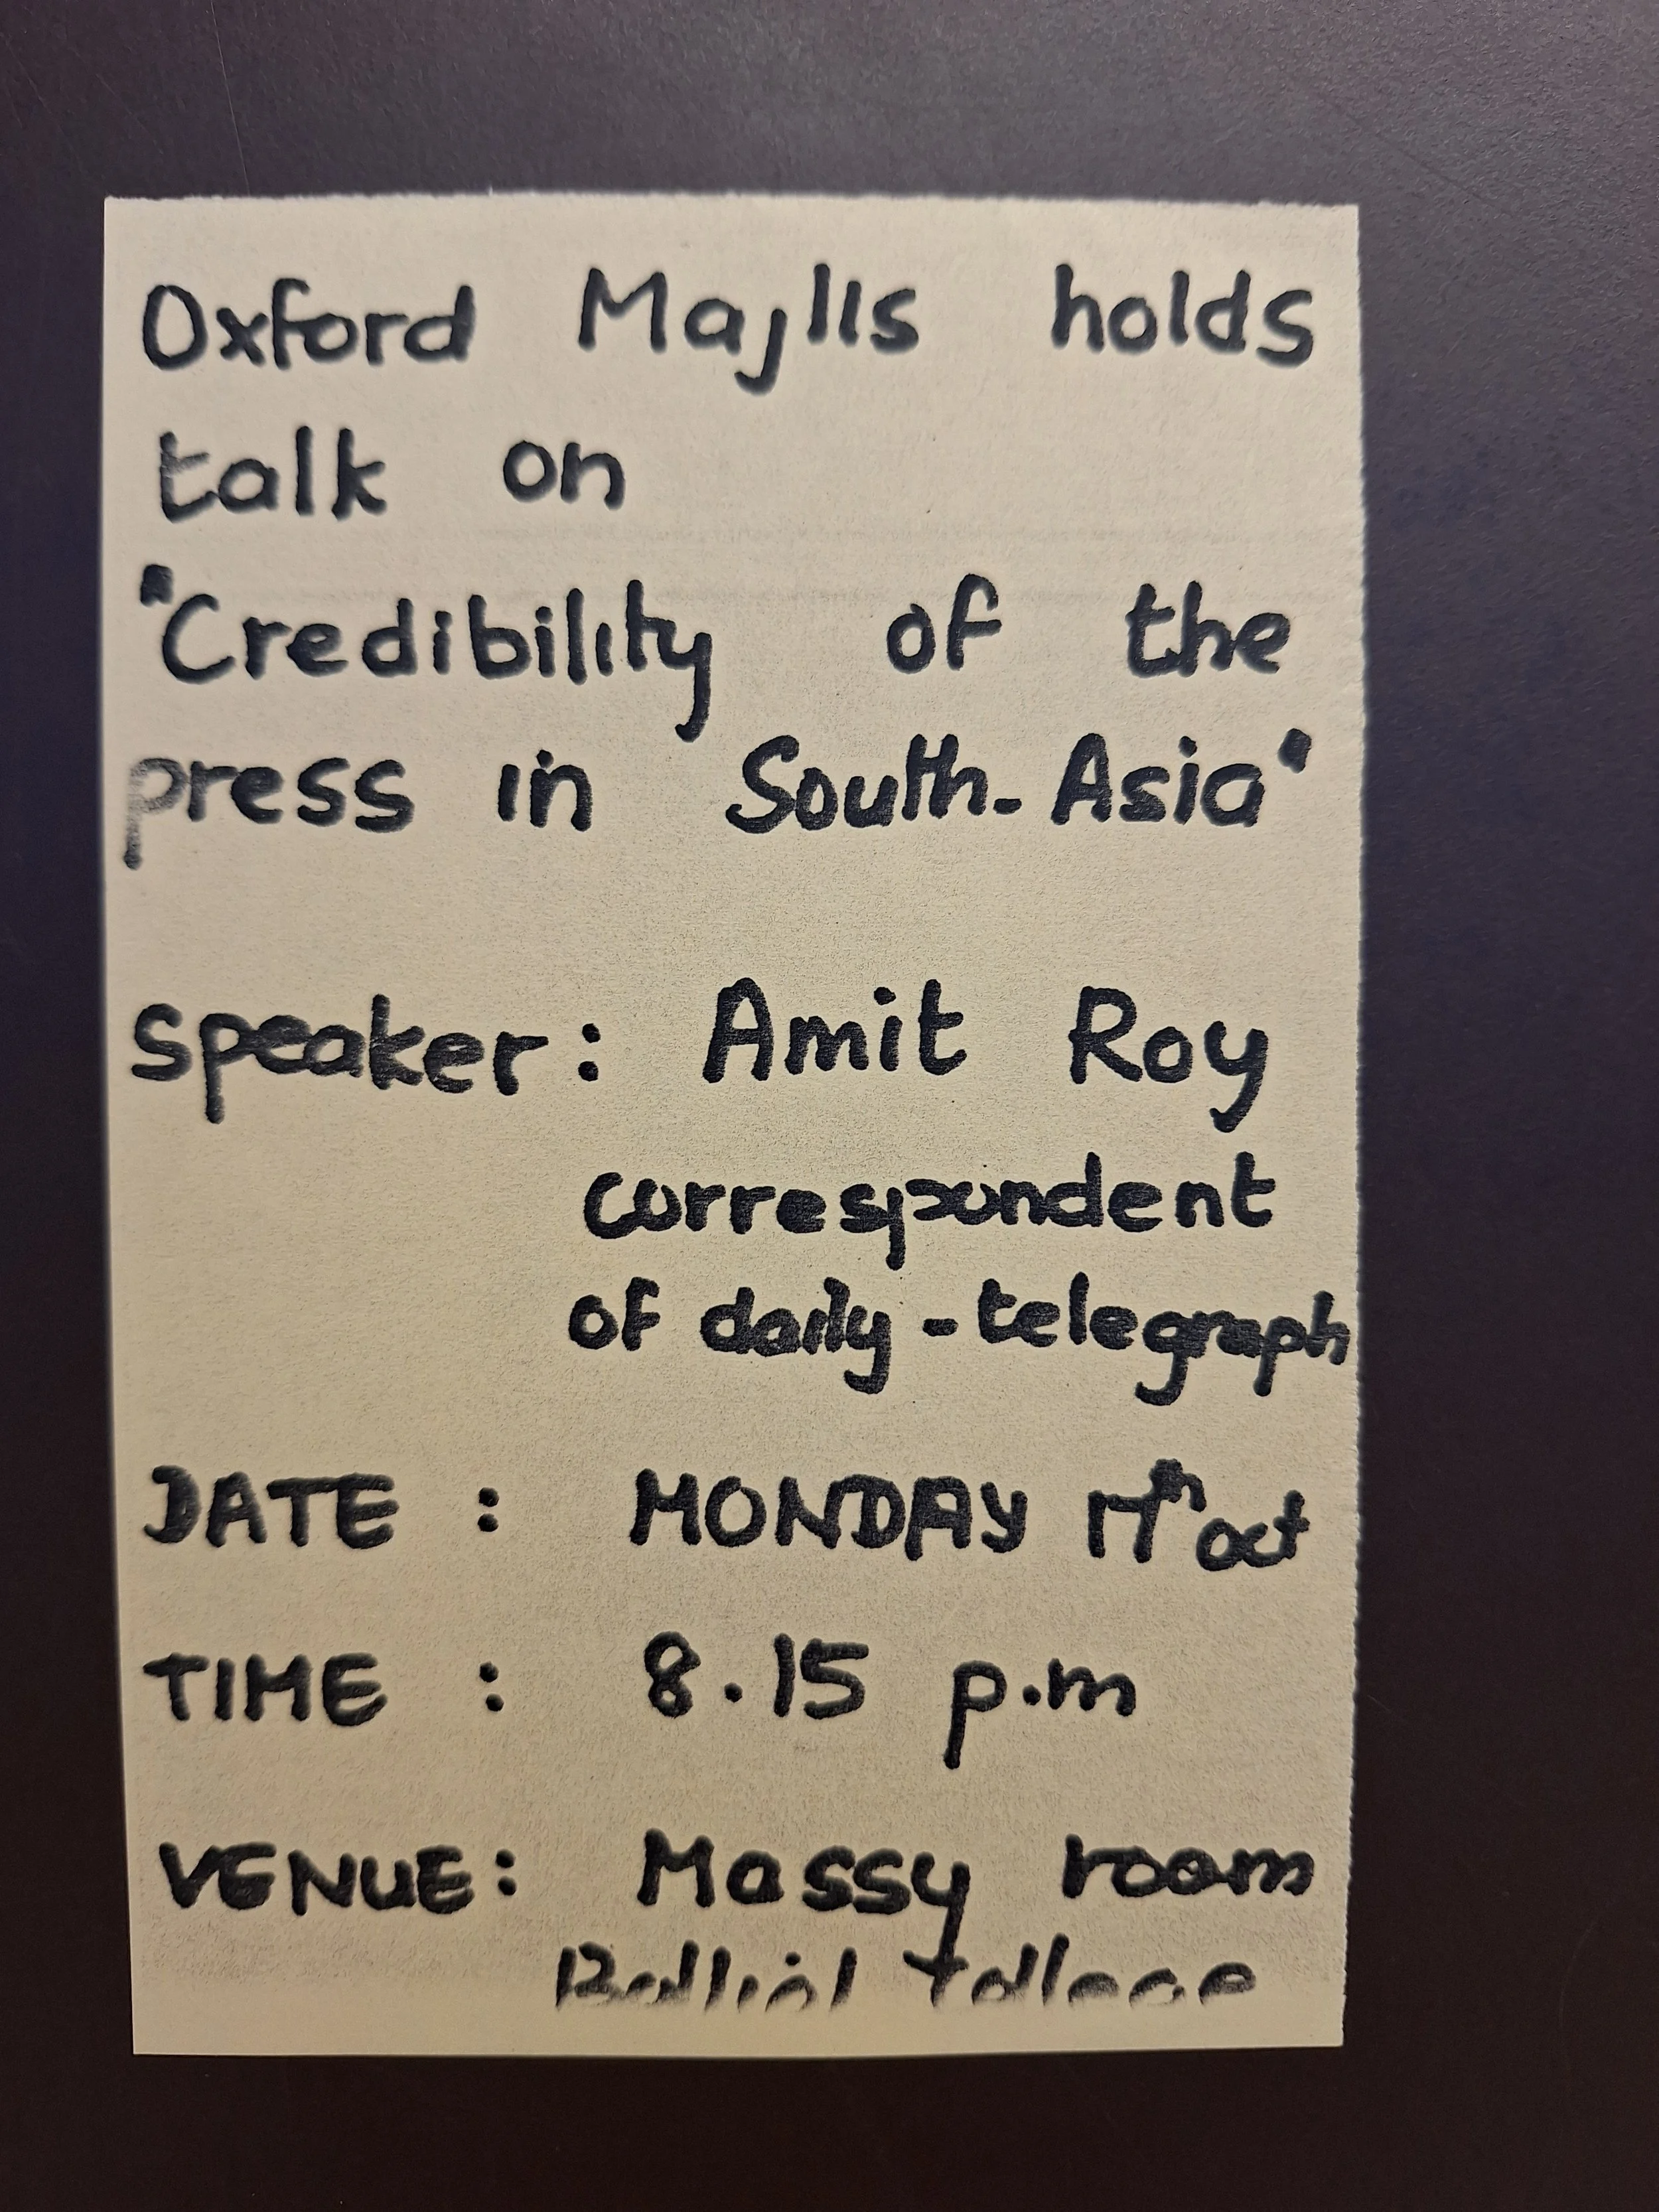 Oxford Majlis holds
talk on
"Credibility of the
press in South-Asia"
speaker: Amit Roy
correspondent
of daily-telegraph
DATE : MONDAY 17th oct
TIME : 8.15 p.m
VENUE: Massy room
Balliol College